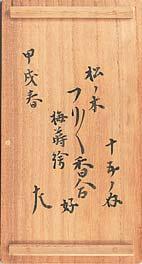 松ノ木
フリ〱香合 好
梅蒔絵
十五ノ内
甲戌春